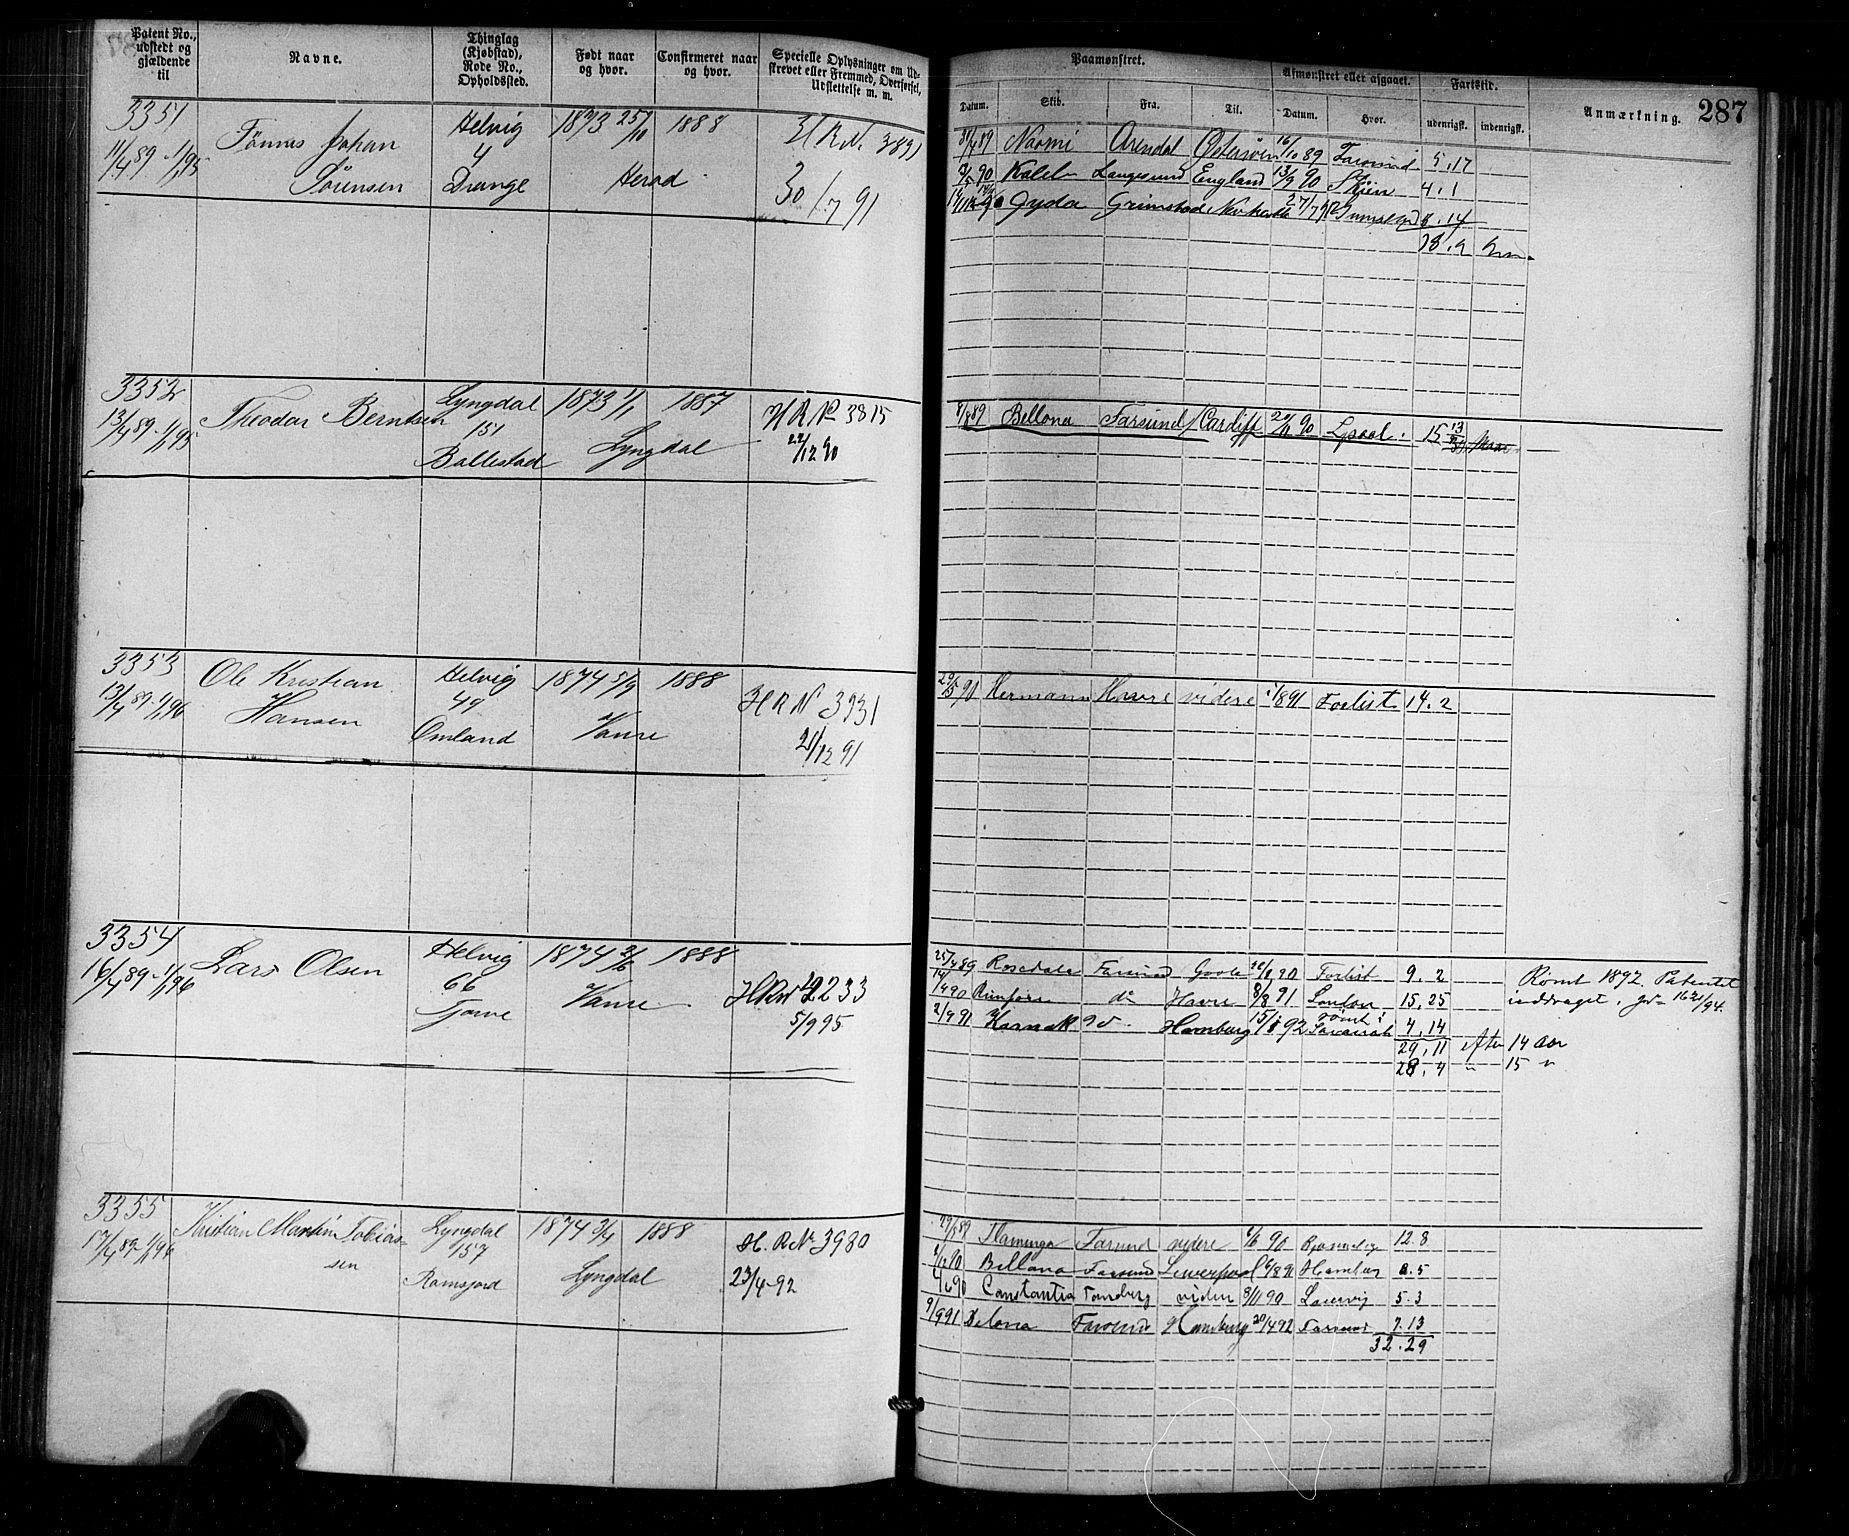 Patent No., udstedt og gjældende til
Navne.
Thinglag (Kjøbstad), Rode No., Opholdssted.
Født naar og hvor.
Confirmeret naar og hvor.
Specielle Oplysninger om Udskrevet eller Fremmed, Overførsel, Udslettelse m. m.
Paamønstret.
Afmønstret eller afgaaet.
Fartstid.
Anmærkning.
287
Datum. Skib. Fra. Til. Datum. Hvor. udenrigsk. indenrigsk.
3351
11/4 89 - 1/1 95
Tönnes Johan
Sörensen
Helvig
4
Drange
1873 25/10 1888
Herad
H R N. 3891
30/7 91
31/4 89 Naomi Arendal Østersöen 16/10 89 Farsund 5.17
90 Kaleb Langesund England 13/9 90 Skien 4.1
Gyda Grimstad 27/7 8.14
18.2
3352
13/4 89 - 1/1 95
Theodor Berntsen
Lyngdal
151
Ballestad
1873 1/1 1887
Lyngdal
H R No 3815
22/12 90
8/8 89 Bellona Farsund Cardiff 20/11 90 Lpool. 15
3353
13/4 89 - 1/1 96
Ole Kristian
Hansen
Helvig
49
Omland
1874 5/9 1888
Vanse
H R N 3931
21/12 91
29/5 90 Hermann Havre videre 1/8 91 Forlist 14.2
3354
16/4 89 - 1/1 96
Lars Olsen
Helvig
66
Tjorve
1874 2/6 1888
Vanse
H R N 4233
5/9 95
25/4 89 Rosedale Farsund Goole 90 Forlist 9.2
14/4 90 do Havre 8/8 91 London 15.25
2/9 91 Karnak do. Hamburg 15/1 92 rømt i 4.14
29.11 efter 14 Aar
28.4 " 15 "
Römt 1892. Patentet
inddraget.
3355
17/4 89 - 1/1 96
Kristian Martin Tobias-
sen
Lyngdal
157
Ramsjord
1874 3/4 1888
Lyngdal
H. R No 3980
23/4 - 92
29/5 89 Flamingo Farsund videre 6/6 90 12.8
90 Bellona Farsund Liverpool 6/8 91 Hamburg 8.5
4/6 90 Constantia Tønsberg videre 8/11 90 Laurvig 5.3
9/9 91 Farsund Hamburg 20/4 92 Farsund 7.13
32.29